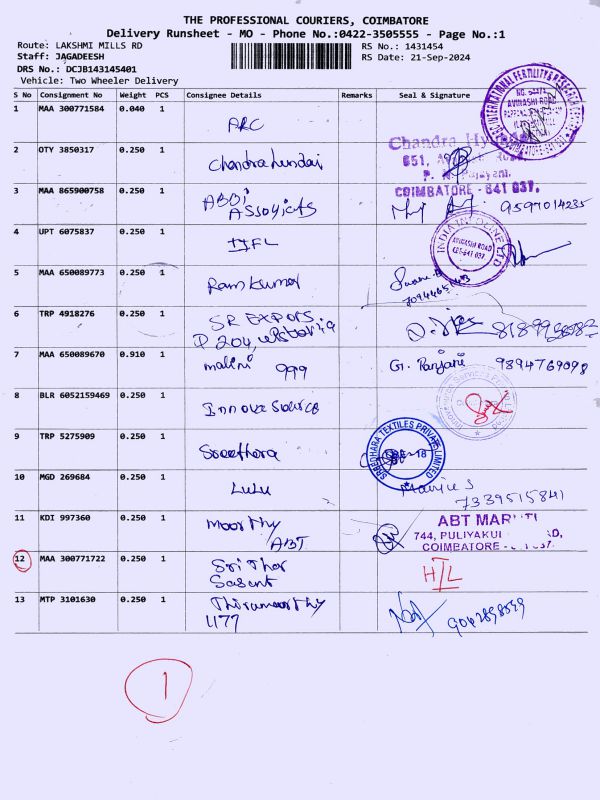 THE PROFESSIONAL COURIERS, COIMBATORE
Delivery Runsheet - MO - Phone No.:0422-3505555 - Page No.:1
Route: LAKSHMI MILLS RD
RS No.: 1431454
Staff: JAGADEESH
RS Date: 21-Sep-2024
DRS No.: DCJB143145401
Vehicle: Two Wheeler Delivery
S No Consignment No Weight PCS Consignee Details Remarks Seal & Signature
1 MAA 300771584 0.040 1 ARC
INTERNATIONAL FERTILITY & RESEARCH
AVINASHI ROAD
2 OTY 3850317 0.250 1 Chandra hundai
Chandra
651,
COIMBATORE - 641 037.
3 MAA 865900758 0.250 1 ABDi
Associats
9597014235
4 UPT 6075837 0.250 1 IIFL
INDIA INFOLINE LTD
AVINASHI ROAD
CBT-641 037
5 MAA 650089773 0.250 1 Ramkumar
6 TRP 4918276 0.250 1 SR Expors
P 204,
7 MAA 650089670 0.910 1 malini 999 G. Ranjani 9894769098
8 BLR 6052159469 0.250 1 Innove Source
9 TRP 5275909 0.250 1 Sreethara
SREEDHARA TEXTILES PRIVATE LIMITED
CBE-18
10 MGD 269684 0.250 1 LULU
7339515841
11 KDI 997360 0.250 1 moorthy
ABT
ABT MARUTI
744, PULIYAKUL ROAD,
COIMBATORE
12 MAA 300771722 0.250 1 Sri Thar
Sasent
H/L
13 MTP 3101630 0.250 1 Thiramoorthy
4177
9042898599
1